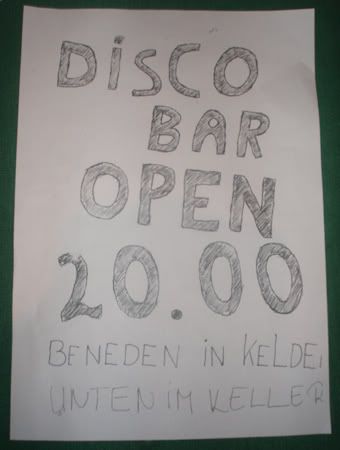 DiSCO
BAR
OPEN
20.00
BENEDEN iN KELDE
UNTEN iM KELLER